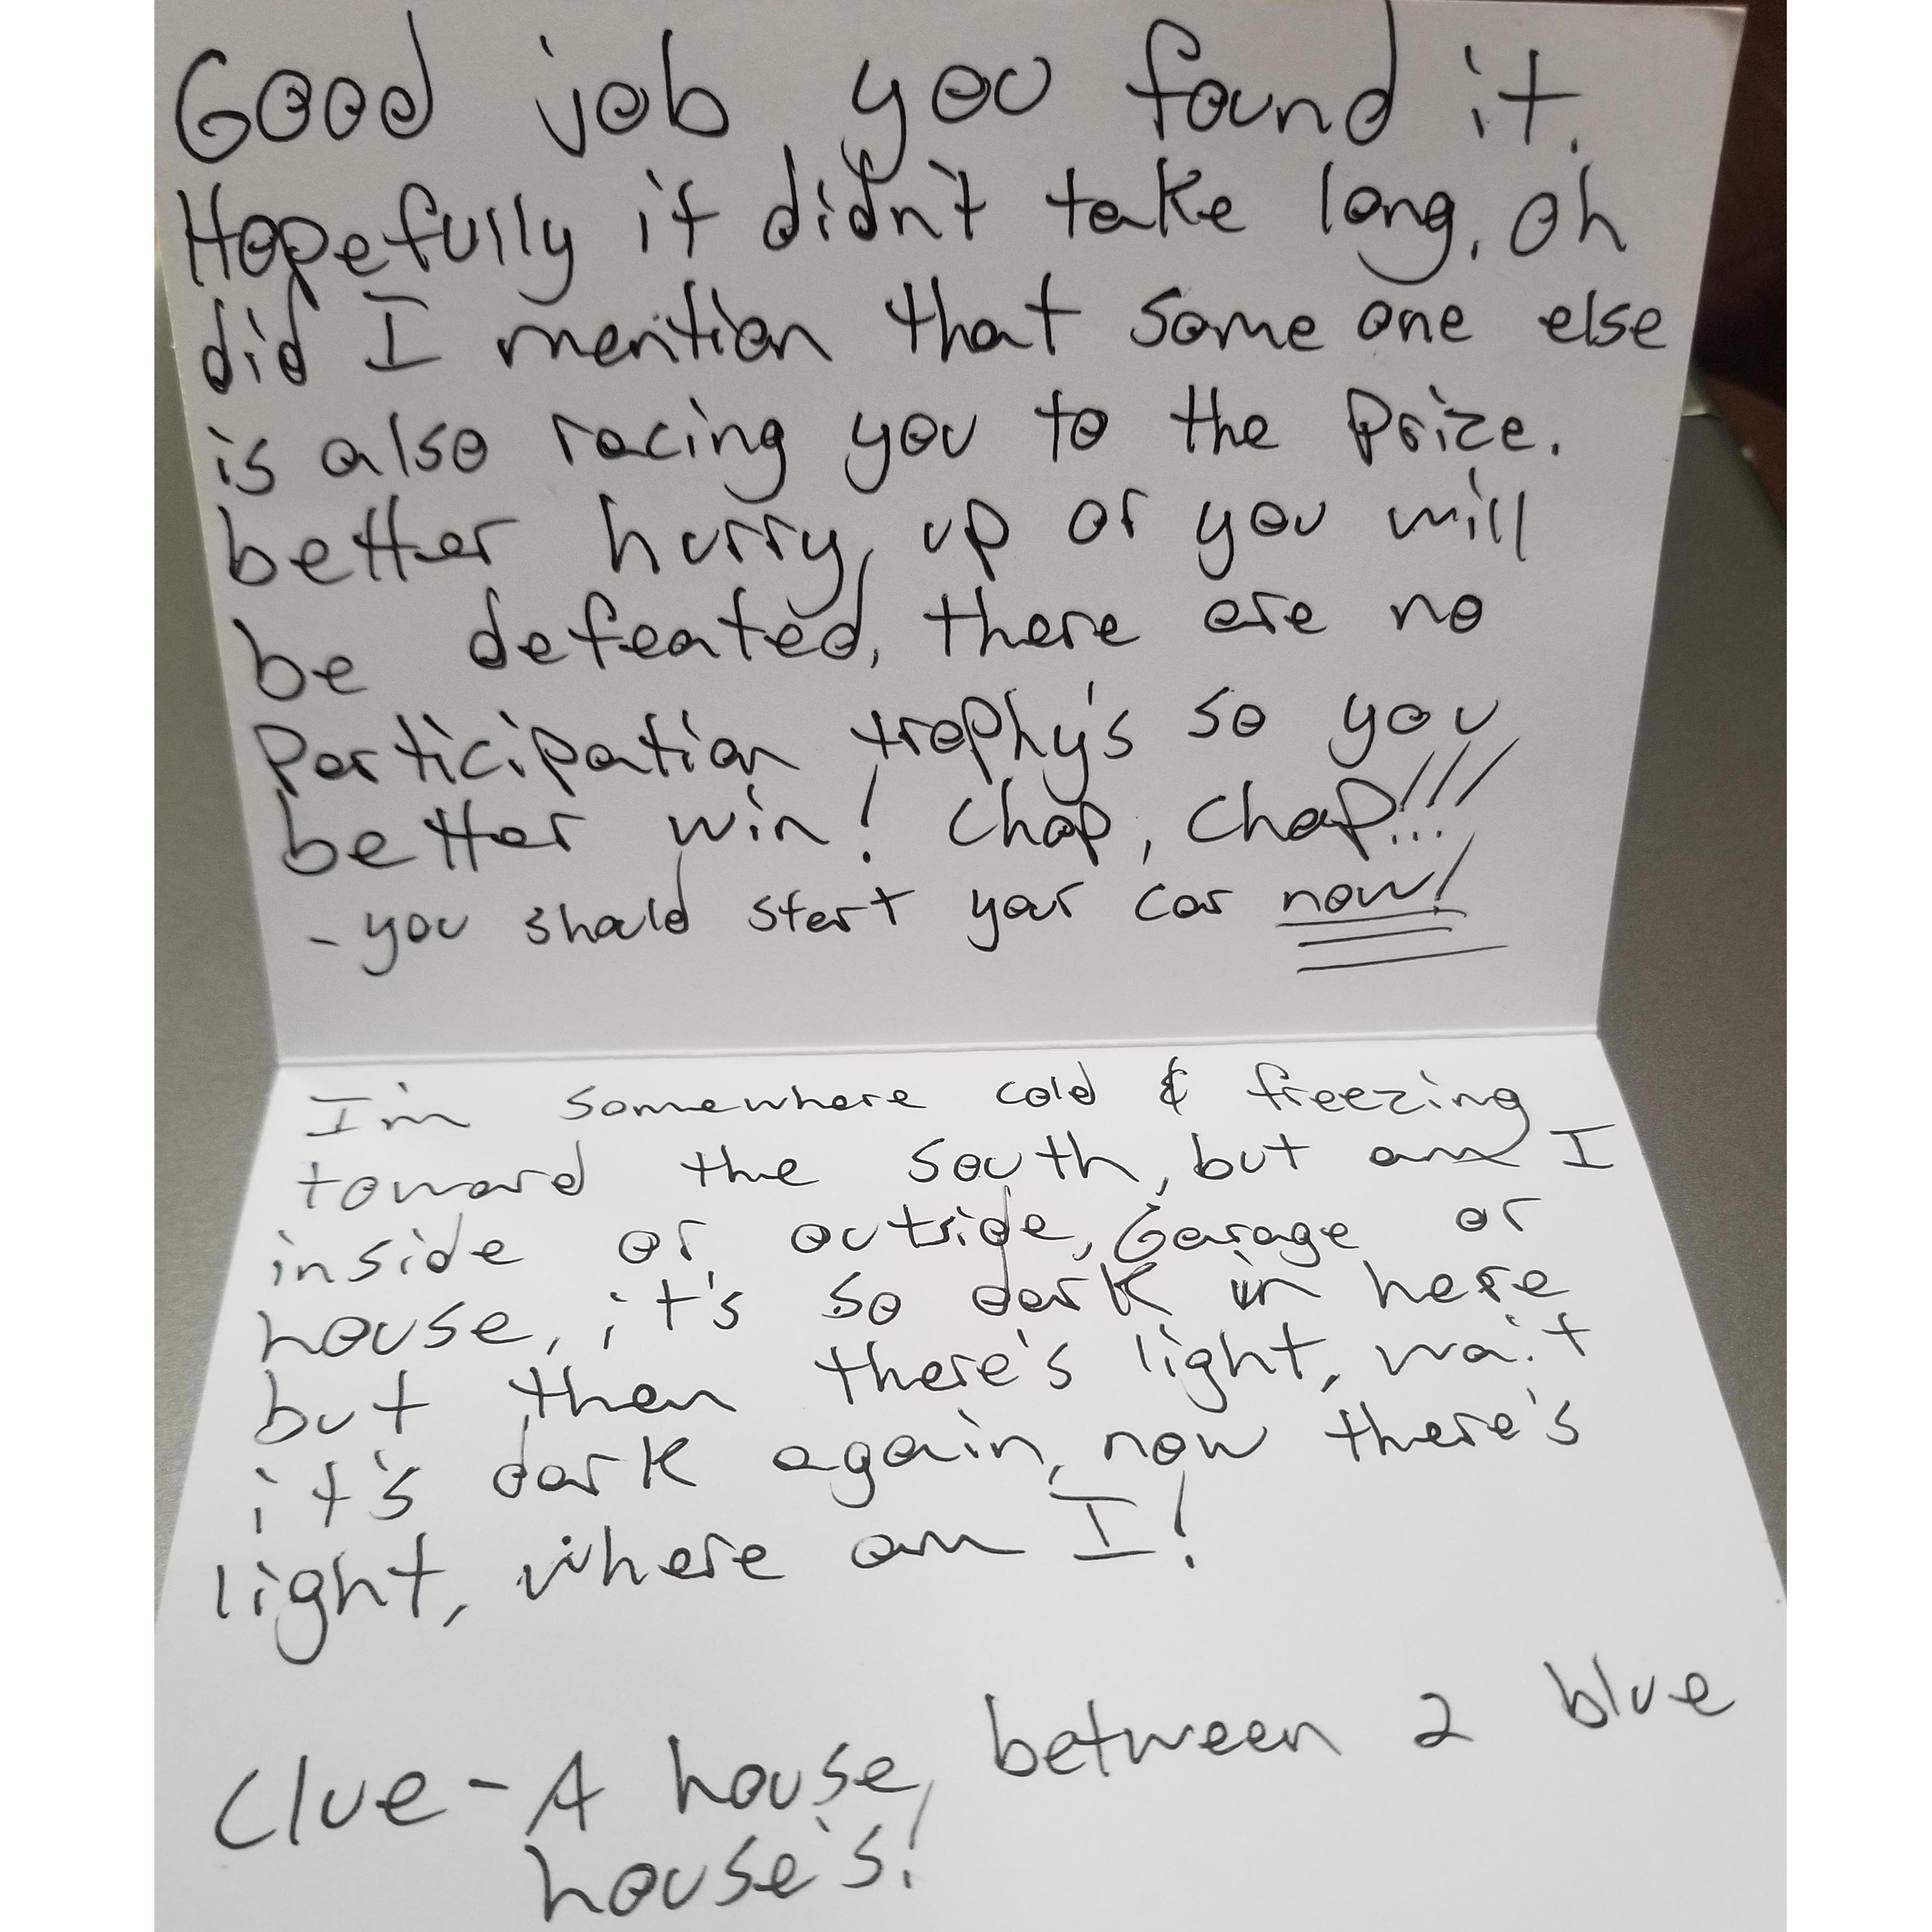 Good job, you found it.
Hopefully it didn't take long, oh
did I mention that some one else
is also racing you to the Prize.
better hurry, up or you will
be defeated, there are no
Participation trophy's so you
better win! Chop, Chop!!!...
- you should start your car now!
I'm somewhere cold & freezing
toward the south, but am I
inside or outside, Garage or
house, it's so dark in here
but then there's light, wait
it's dark again, now there's
light, where am I!
Clue - A house, between 2 blue
house's!